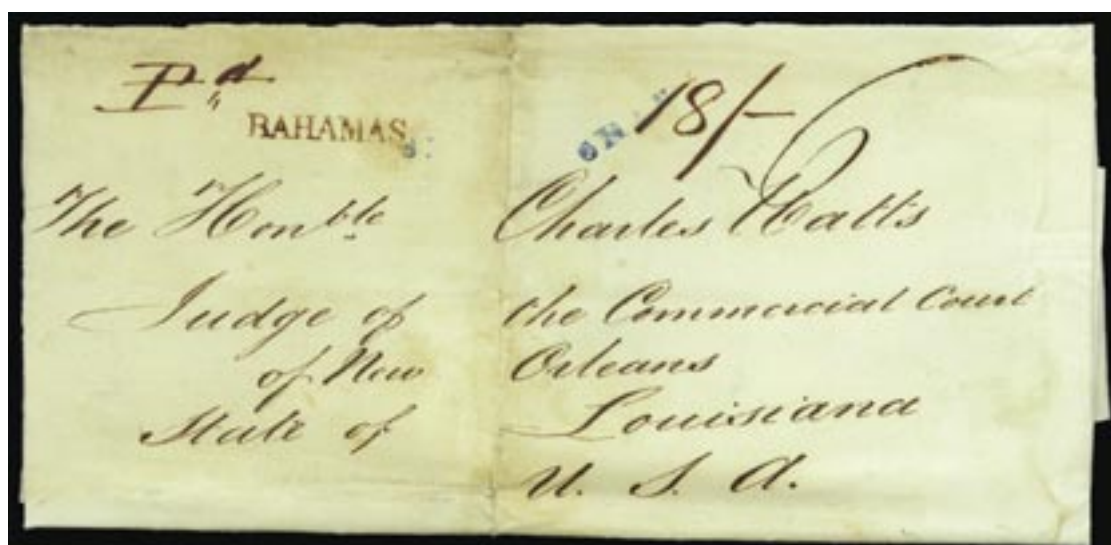 Pd
BAHAMAS
18/-
The Honble Charles Watts
Judge of the Commercial Court
of New Orleans
State of Louisiana
U. S. A.